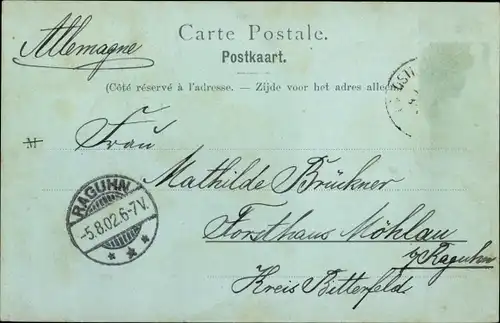 Allemagne
Carte Postale.
Postkaart.
(Côté réservé à l'adresse. — Zijde voor het adres alleen
M
Frau
Mathilde Brückner
Forsthaus Möhlau
b/Raguhn
Kreis Bitterfeld
RAGUHN
-5.8.02.6-7V.